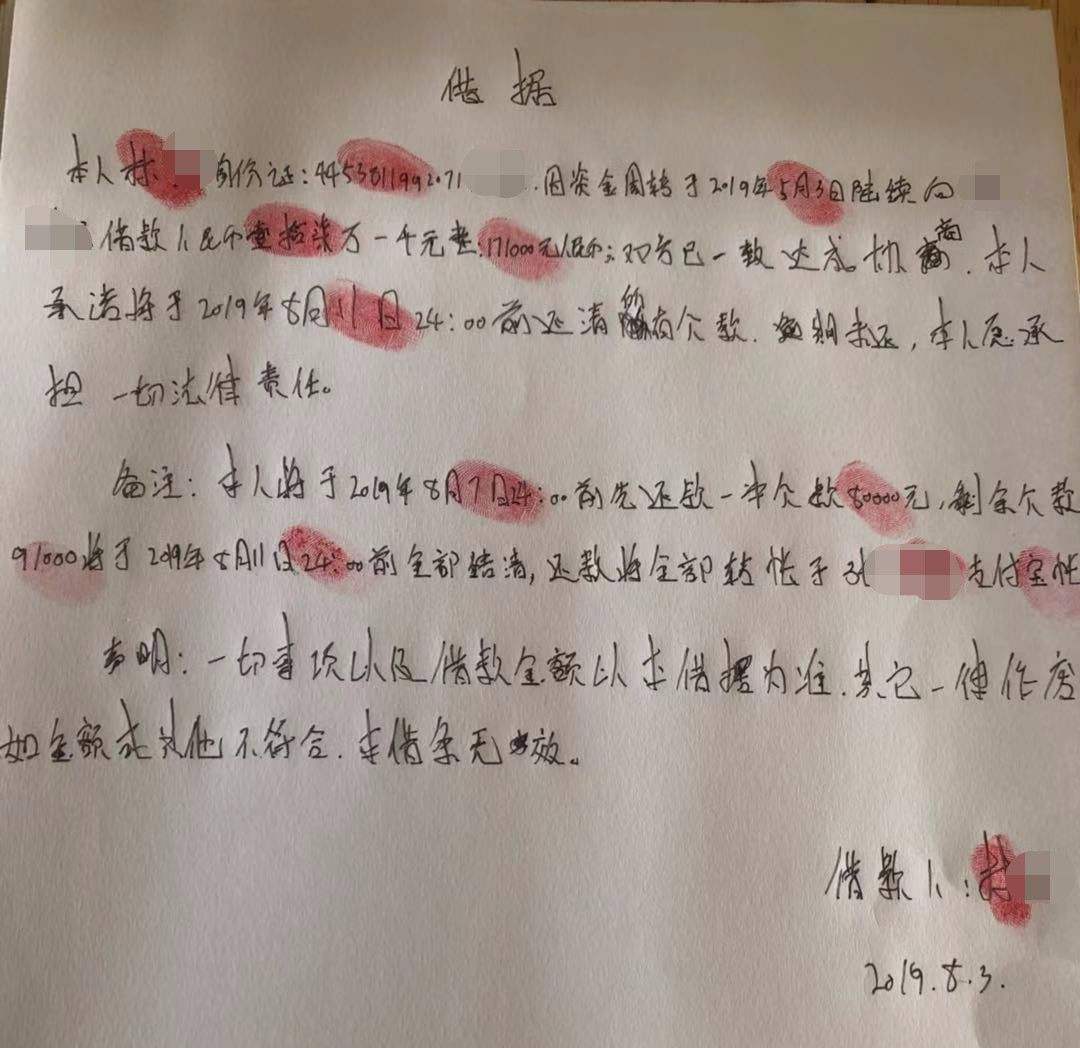 借据
本人林 身份证:4453811992071 .因资金周转于2019年5月3日陆续向
借款人民币壹拾柒万一千元整:171000元人民币;双方已一致达成协商.本人
承诺将于2019年8月11日24:00前还清所有欠款.逾期未还,本人愿承
担一切法律责任。
备注:本人将于2019年8月7日24:00前先还款一半欠款80000元,剩余欠款
91000将于2019年8月11日24:00前全部结清,还款将全部转帐于 支付宝帐
声明:一切事项以及借款金额以本借据为准.其它一律作废
如金额或其他不符合.本借条无效。
借款人:林
2019.8.3.